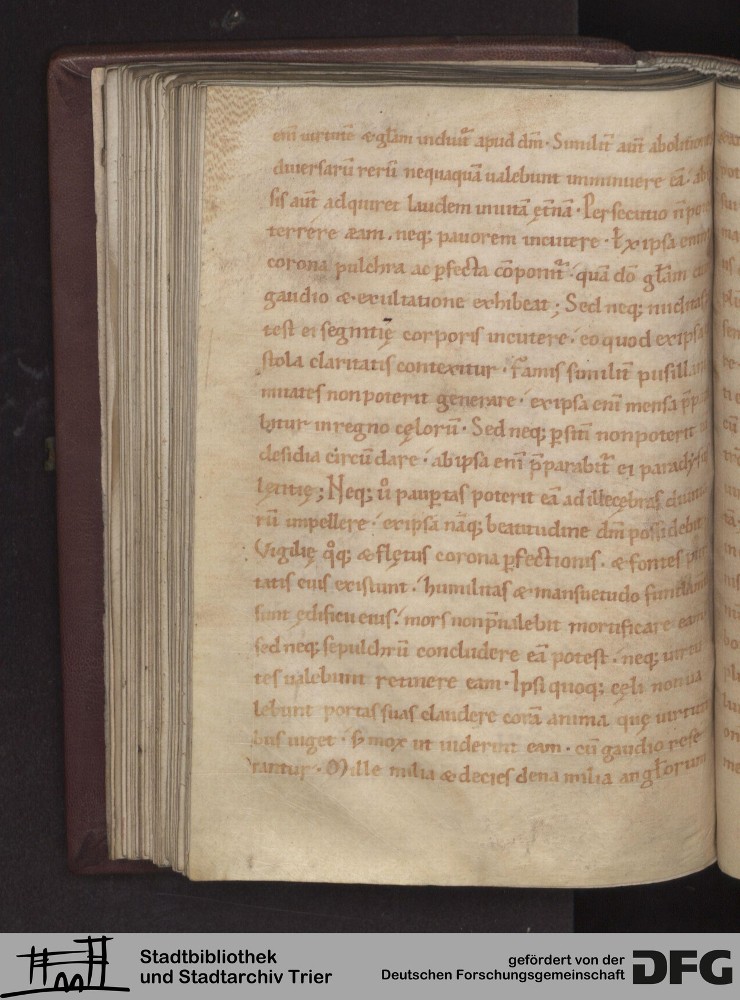 eni uirtute & głam induit᷑ apud dm̄. Similit̄ aut̄ abolition
diuersarū rerū nequaquā ualebunt inminuere eā. ab
sis aut̄ adquiret laudem unitā et̄nā. Persecutio n̄ po
terrere æam. neq; pauorem incutere. Ex ipsa enim
corona pulchra ac ꝑfecta cōponit᷑. quā dō głam
gaudio & exultatione exhibeat; Sed neq; nuditas
test ei segnitię corporis incutere. eo quod ex ipsa
stola claritatis contexitur. Famis similit̄ pusillani
mitates non poterit generare. ex ipsa enī mensa p̄pa
bitur in regno cęlorū. Sed neq; ꝑ sitī non poterit
desidia circū dare. ab ipsa enī p̄parabit᷑ ei paradysi
lętitię; Neq; uͦ pauꝑtas poterit eā ad illecebras diuitia
rū impellere. ex ipsa nāq; beatitudine dm̄ possidebit
Vigilię qͦq; & fletus corona ꝑfectionis. & fontes
tatis eius existunt. humilitas & mansuetudo fundam
sunt ędificii eius. mors non p̄ualebit mortificare eam
sed neq; sepulchrū concludere eā potest. neq; uirtu
tes ualebunt retinere eam. Ipsi quoq; cęli non ua
lebunt portas suas claudere corā anima quę uirtuti
bus uiget. s; mox ut uiderint eam. cū gaudio rese
rantur. Mille milia & decies dena milia angłorum
Stadtbibliothek
und Stadtarchiv Trier
gefördert von der
Deutschen Forschungsgemeinschaft
DFG